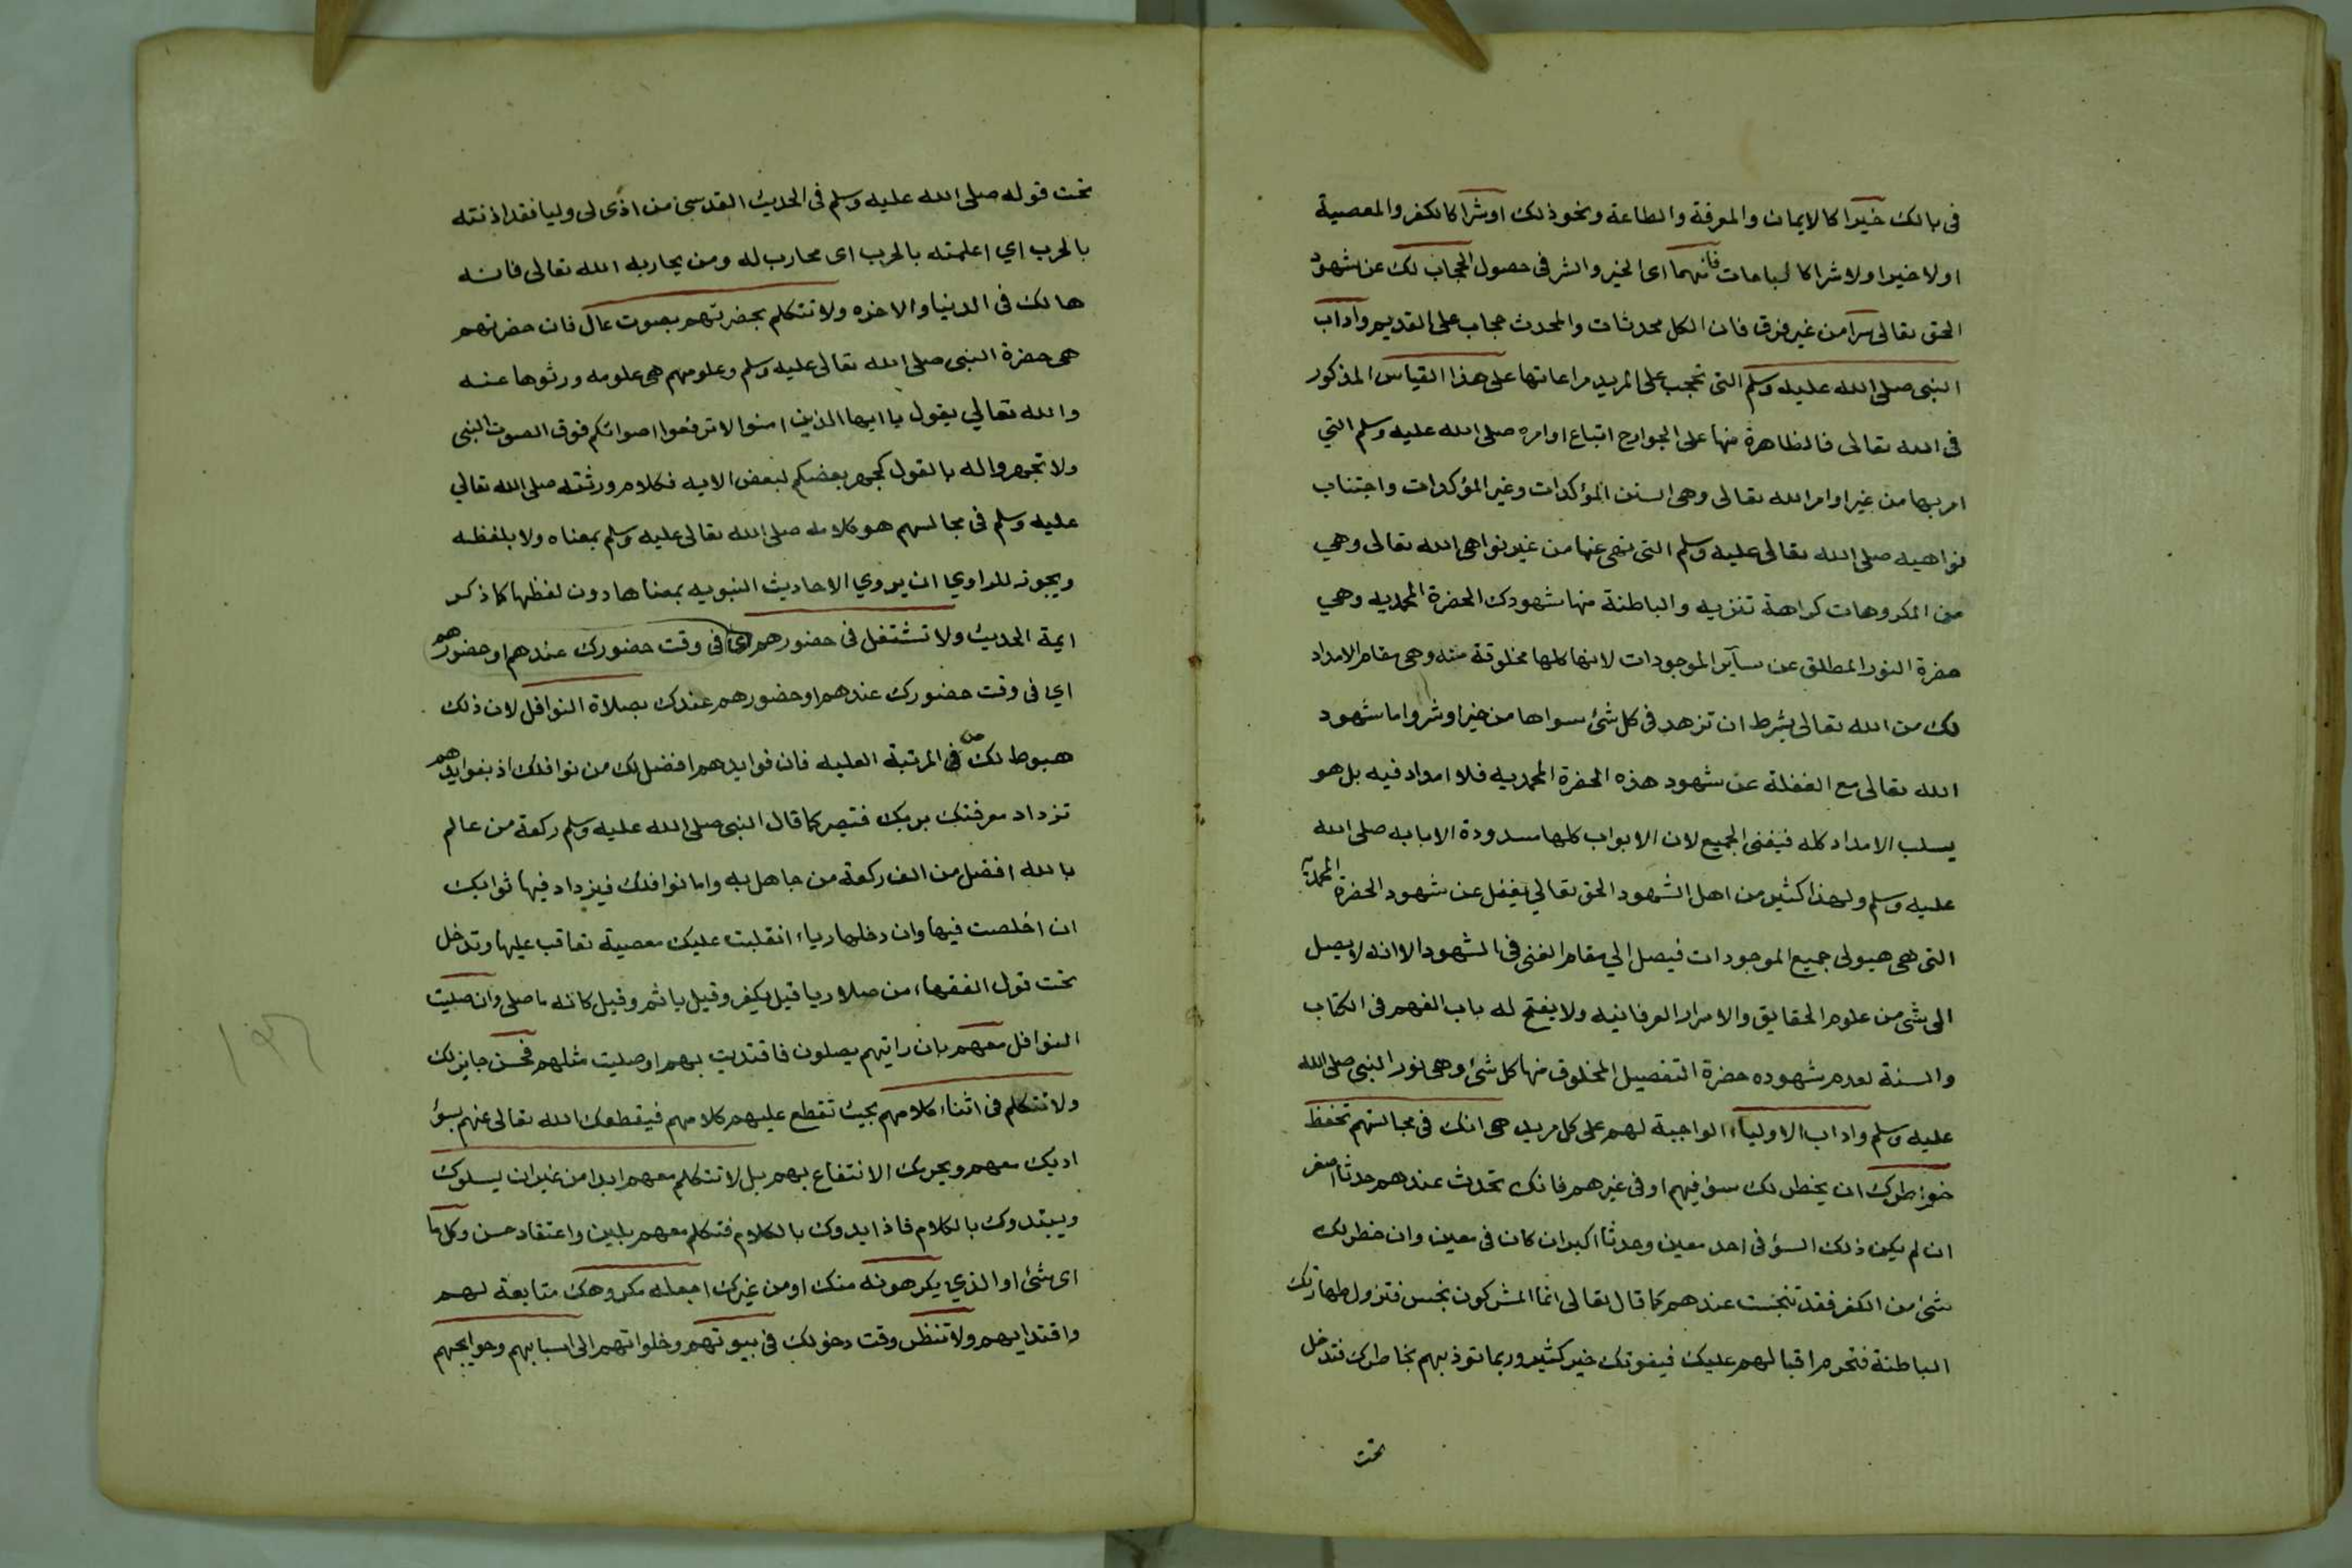 في بالك خيرا كالايمان والمعرفة والطاعة ونحو ذلك او شرا كالكفر والمعصية
اولا خيرا ولا شرا كالمباحات فانهما اى الخير والشر في حصول الحجاب لك عن شهود
الحق تعالى سرا من غير فرق فان الكل محدثات والمحدث حجاب على القديم وآداب
النبي صلى الله عليه وسلم التي تجب على المريد مراعاتها على هذا القياس المذكور
في الله تعالى فالظاهرة منها على الجوارح اتباع اوامره صلى الله عليه وسلم التي
امر بها من غير اوامر الله تعالى وهى السنن المؤكدات وغير المؤكدات واجتناب
نواهيه صلى الله تعالى عليه وسلم التى نهى عنها من غير نواهى الله تعالى وهي
من المكروهات كراهة تنزيه والباطنة منها شهودك الحضرة المحمديه وهي
حضرة النور المطلق عن سآير الموجودات لانها كلها مخلوقة منه وهى مقام الامداد
لك من الله تعالى بشرط ان تزهد في كل شئ سواها من خير او شر واما شهود
الله تعالى مع الغفلة عن شهود هذه الحضرة المحمديه فلا امداد فيه بل هو
يسلب الامداد كله فيفنى الجميع لان الابواب كلها مسدودة الا بابه صلى الله
عليه وسلم ولهذا كثير من اهل الشهود الحق تعالي يغفل عن شهود الحضرة المحمدية
التى هى هيولى جميع الموجودات فيصل الي مقام الفنى في الشهود الا انه لا يصل
الى شى من علوم الحقايق والاسرار العرفانيه ولا يفتح له باب الفهم فى الكتاب
والسنة لعدم شهوده حضرة التفصيل المخلوق منها كل شئ وهى نور النبي صلى الله
عليه وسلم واداب الاولياء الواجبة لهم على كل مريد هى انك فى مجالستهم تحفظ
خواطرك ان يخطر لك سوٴ فيهم او فى غيرهم فانك تحدث عندهم حدثا اصغر
ان لم يكن ذلك السوٴ فى احد معين وحدثا اكبر ان كان فى معين وان خطر لك
شئ من الكفر فقد تنجست عندهم كما قال تعالى انما المشركون نجس فتزول طهارتك
الباطنة فتحرم اقبالهم عليك فيفوتك خير كثير وربما توذيهم بخاطرك فتدخل
تحت
تحت قوله صلى الله عليه وسلم فى الحديث القدسي من اذى لى وليا فقد اذنته
بالحرب اي اعلمته بالحرب اى محارب له ومن يحاربه الله تعالى فانه
هالك فى الدنيا والاخره ولا تتكلم بحضرتهم بصوت عال فان حضرتهم
هى حضرة النبى صلى الله تعالى عليه وسلم وعلومهم هى علومه ورثوها عنه
والله تعالي يقول يا ايها الذين امنوا لا ترفعوا اصواتكم فوق الصوت النبى
ولا تجهروا له بالقول كجهر بعضكم لبعض الايه فكلام ورثته صلى الله تعالي
عليه وسلم فى مجالسهم هو كلامه صلى الله تعالى عليه وسلم بمعناه ولا بلفظه
ويجوز للراوي ان يروي الاحاديث النبويه بمعناها دون لفظها كما ذكر
ايمة الحديث ولا تشتغل فى حضورهم اى فى وقت حضورك عندهم او حضورهم
اي فى وقت حضورك عندهم او حضورهم عندك بصلاة النوافل لان ذلك
هبوط لك من فى المرتبة العليه فان فوايدهم افضل لك من نوافلك اذ بفوايدهم
تزداد معرفتك بربك فتصير كما قال النبى صلى الله عليه وسلم ركعة من عالم
بالله افضل من الف ركعة من جاهل به واما نوافلك فيزداد فيها ثوابك
ان اخلصت فيها وان دخلها رياء انقلبت عليك معصية تعاقب عليها وتدخل
تحت قول الفقهاء من صلا ريا قيل يكفر وقيل ياثم وقيل كانه ما صلى وان صليت
النوافل معهم بان رايتهم يصلون فاقتديت بهم او صليت مثلهم فحسن جايز لك
ولا تتكلم فى اثناء كلامهم بحيث تقطع عليهم كلامهم فيقطعك الله تعالى عنهم بسوٴ
ادبك معهم ويحرمك الانتفاع بهم بل لا تتكلم معهم ابدا من غير ان يسلوك
ويبتدوك بالكلام فاذا ابدوك بالكلام فتكلم معهم بلين واعتقاد حسن وكل ما
اى شئ او الذي يكرهونه منك او من غيرك اجعله مكروهك متابعة لهم
واقتدا بهم ولا تنظر وقت دخولك فى بيوتهم وخلواتهم الى اسبابهم وحوايجهم